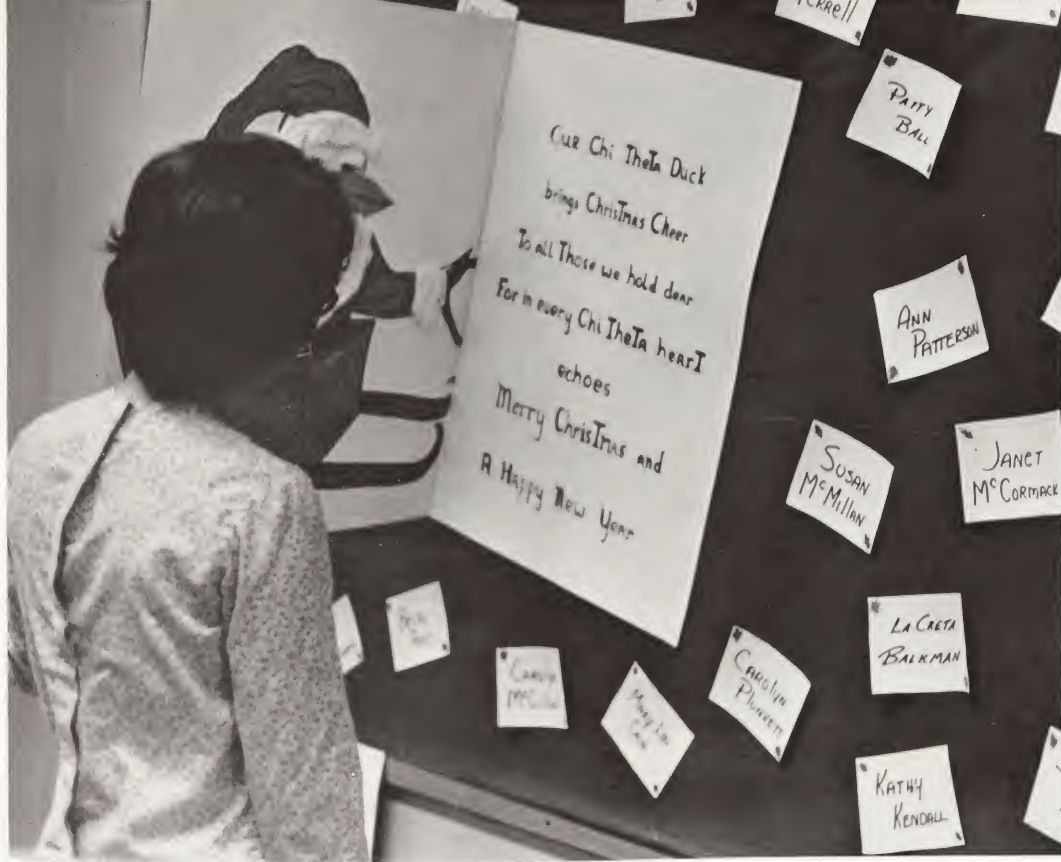 Our Chi Theta Duck
brings Christmas Cheer
To all Those we hold dear
For in every Chi Theta heart
echoes
Merry Christmas and
A Happy New Year
Patty
Ball
Ann
Patterson
Susan
McMillan
Janet
McCormack
La Creta
Balkman
Carolyn
Plunkett
Kathy
Kendall